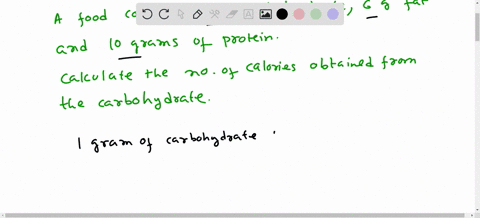 A food co , 6 g fat
and 10 grams of protein.
Calculate the no. of calories obtained from
the carbohydrate.
1 gram of carbohydrate